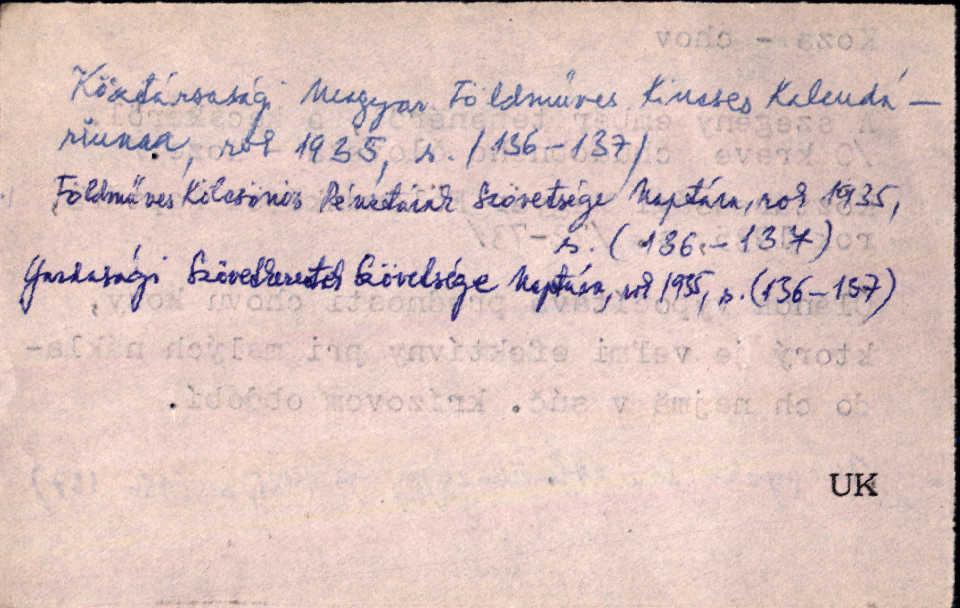 Köztársasági Magyar Földmüves Kincses Kalendá-
riuma, rok 1935, s. /136-137/
Földmüves Kölcsönös Pénztárak Szövetsége Naptára, rok 1935,
s. (136-137)
Gazdasági Szövetkezetek Szövetsége Naptára, rok 1935, s. (136-137)
UK